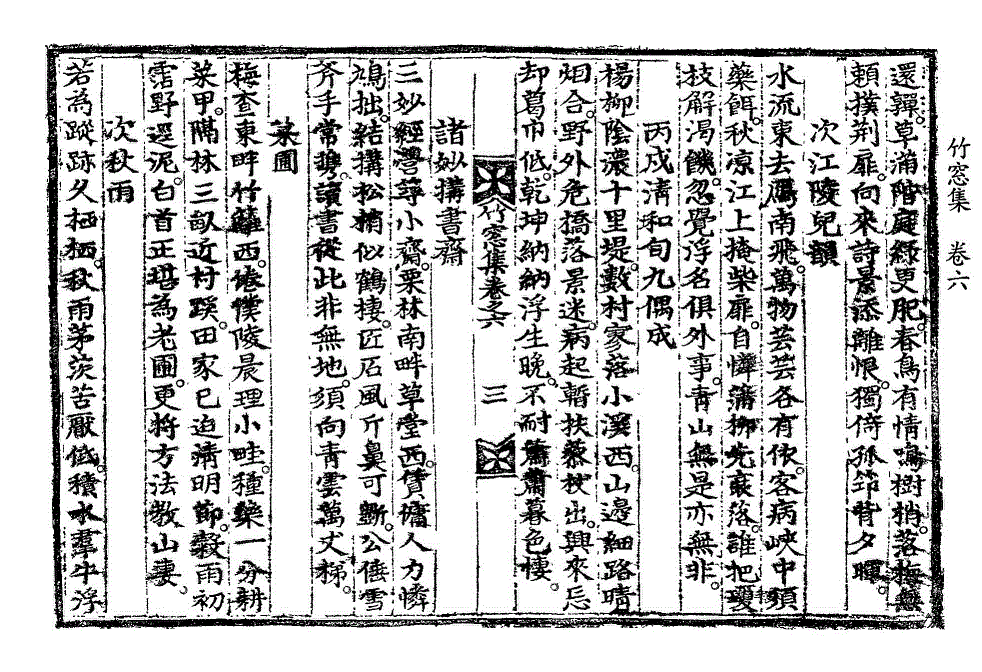 竹窓集 卷六
還鞾。草滿階庭綠更肥。春鳥有情鳴樹梢。落梅無
賴撲荆扉。向來詩景添離恨。獨倚孤筇背夕暉。
次江陵兒韻
水流東去鴈南飛。萬物芸芸各有依。客病峽中須
藥餌。秋凉江上掩柴扉。自憐蒲柳先衰落。誰把瓊
枝解渴饑。忽覺浮名俱外事。靑山無是亦無非。
丙戍淸和旬九偶成
楊柳陰濃十里堤。數村家落小溪西。山邊細路晴
烟合。野外危橋落景迷。病起暫扶藜杖出。興來忘
却葛巾低。乾坤納納浮生晚。不耐蕭蕭暮色棲。
竹窓集卷之六
三
諸妙搆書齋
三妙經營籌小齋。栗林南畔草堂西。賃傭人力憐
鳩拙。結搆松楠似鶴棲。匠石風斤鼻可斲。公倕雪
斧手常携。讀書從此非無地。須向靑雲萬丈梯。
菜圃
梅查東畔竹籬西。倦僕陵晨理小畦。種藥一分耕
菜甲。隔林三畝近村蹊。田家已迫淸明節。穀雨初
霑野逕泥。白首正堪爲老圃。更將方法敎山妻。
次秋雨
若爲蹤跡久栖栖。秋雨茅茨苦厭低。積水羣牛浮